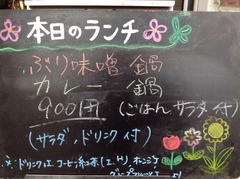 本日のランチ
ぶり味噌 鍋
カレー 鍋
900円 (ごはん サラダ 付)
(サラダ、ドリンク 付)
※ ドリンクは コーヒー 紅茶 (I.H) オレンジ
グレープフルーツ より